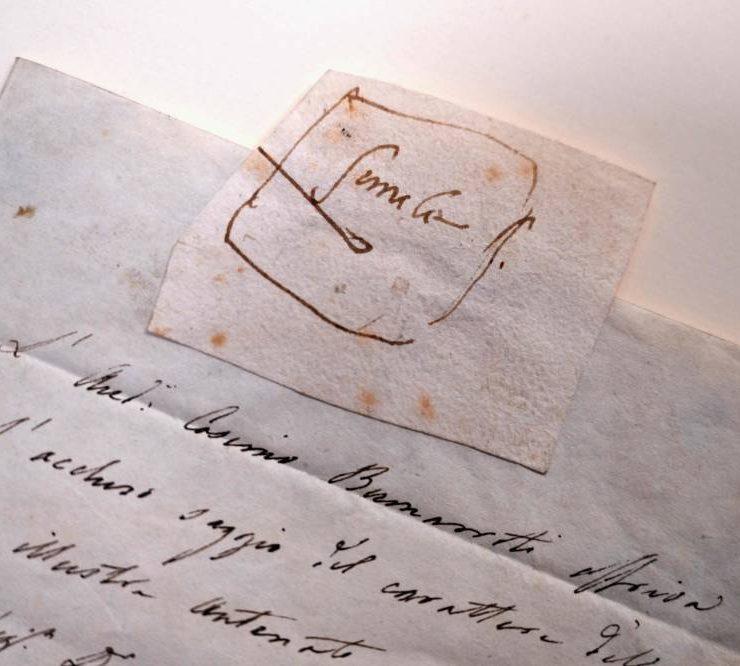 Simile
L' Aud. Cosimo Buonarroti offriva
l'accluso saggio del carattere dell
illustre antenato